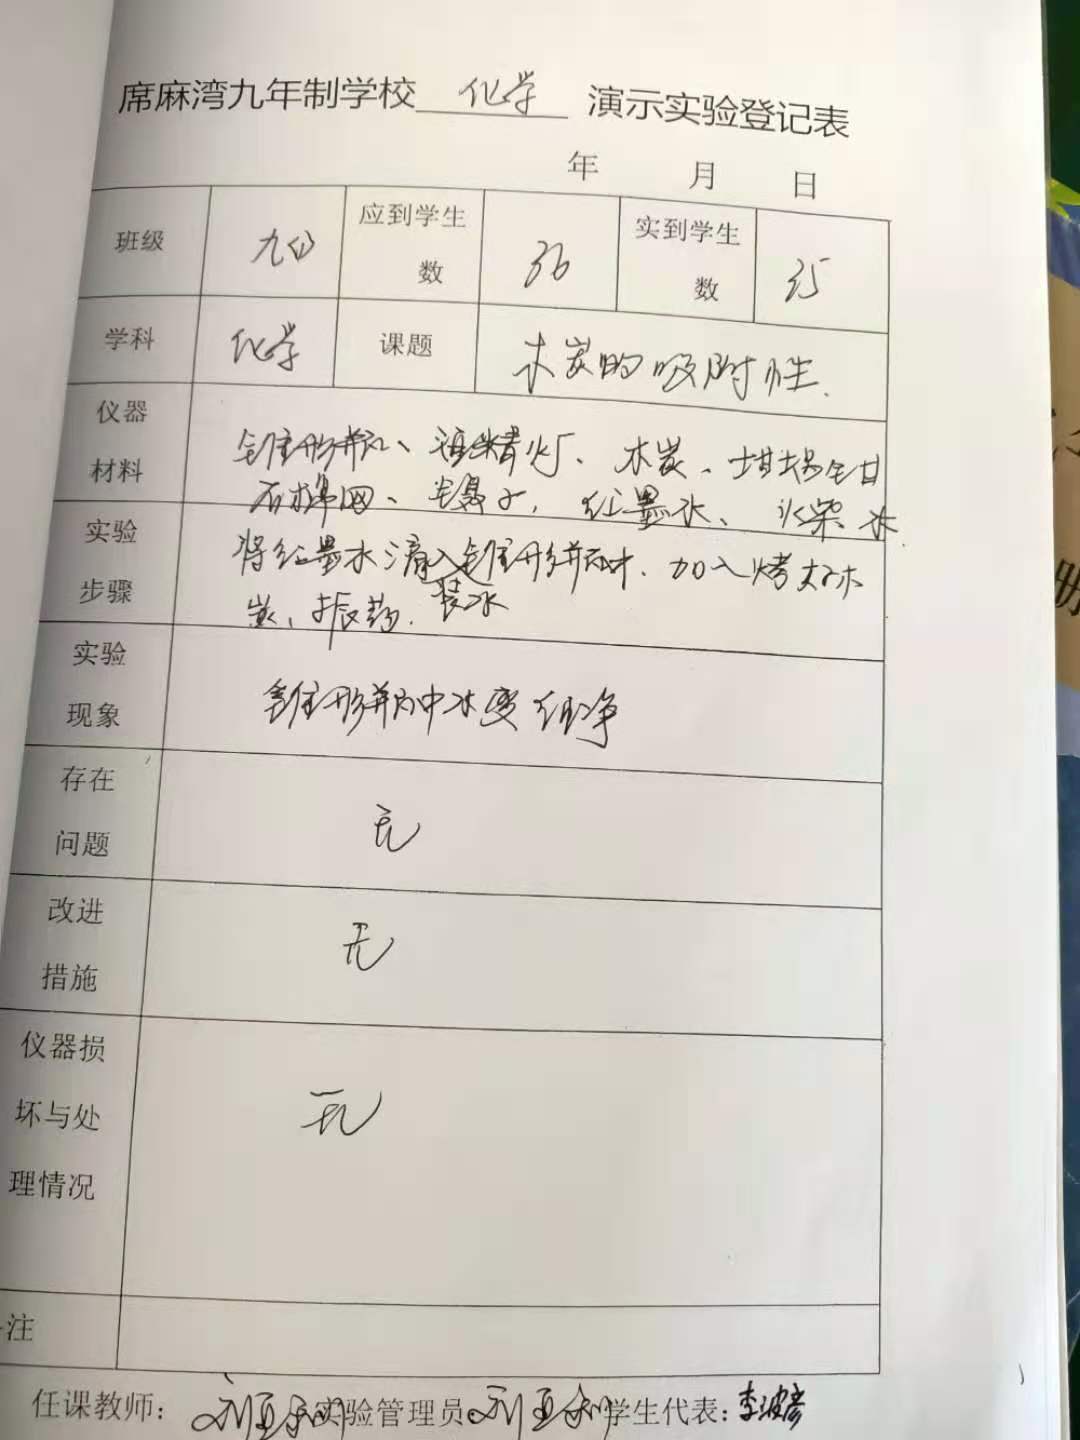 席麻湾九年制学校 化学 演示实验登记表
年 月 日
班级 九 应到学生数 36 实到学生数 35
学科 化学 课题 木炭的吸附性.
仪器材料 锥形瓶、酒精灯、木炭、坩埚钳
石棉网、镊子,红墨水、火柴 水.
实验步骤 将红墨水滴入锥形瓶中.加入烤木
炭、振荡. 装水
实验现象 锥形瓶内中水变 净
存在问题 无
改进措施 无
仪器损坏与处理情况 无
注
任课教师: 实验管理员: 学生代表:李波彦